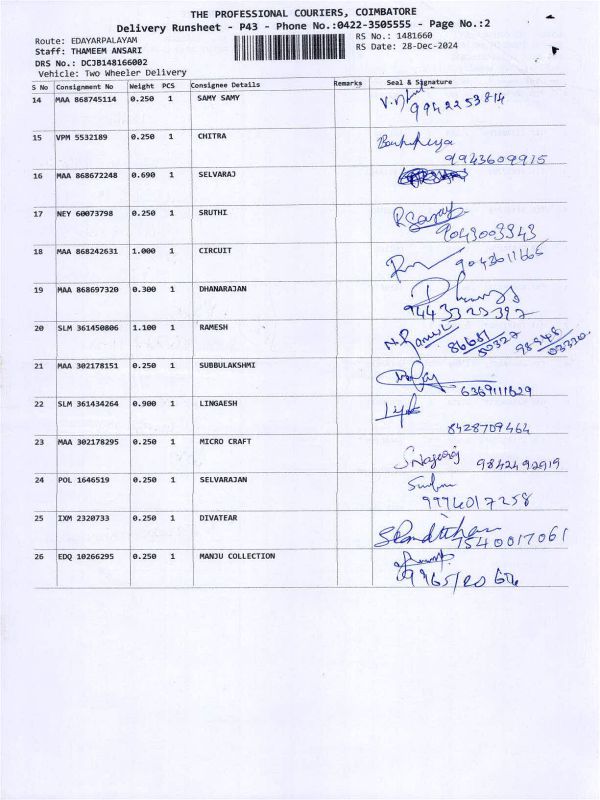 THE PROFESSIONAL COURIERS, COIMBATORE
Delivery Runsheet - P43 - Phone No.:0422-3505555 - Page No.:2
Route: EDAYARPALAYAM RS No.: 1481660
Staff: THAMEEM ANSARI RS Date: 28-Dec-2024
DRS No.: DCJB148166002
Vehicle: Two Wheeler Delivery
S No Consignment No Weight PCS Consignee Details Remarks Seal & Signature
14 MAA 868745114 0.250 1 SAMY SAMY 9942253814
15 VPM 5532189 0.250 1 CHITRA
9943609915
16 MAA 868672248 0.690 1 SELVARAJ
17 NEY 60073798 0.250 1 SRUTHI
9043003343
18 MAA 868242631 1.000 1 CIRCUIT 9043011665
19 MAA 868697320 0.300 1 DHANARAJAN
9443320397
20 SLM 361450806 1.100 1 RAMESH N. Ramesh
21 MAA 302178151 0.250 1 SUBBULAKSHMI
6369111629
22 SLM 361434264 0.900 1 LINGAESH
8428709464
23 MAA 302178295 0.250 1 MICRO CRAFT
9842492919
24 POL 1646519 0.250 1 SELVARAJAN
9994017258
25 IXM 2320733 0.250 1 DIVATEAR
7540017061
26 EDQ 10266295 0.250 1 MANJU COLLECTION